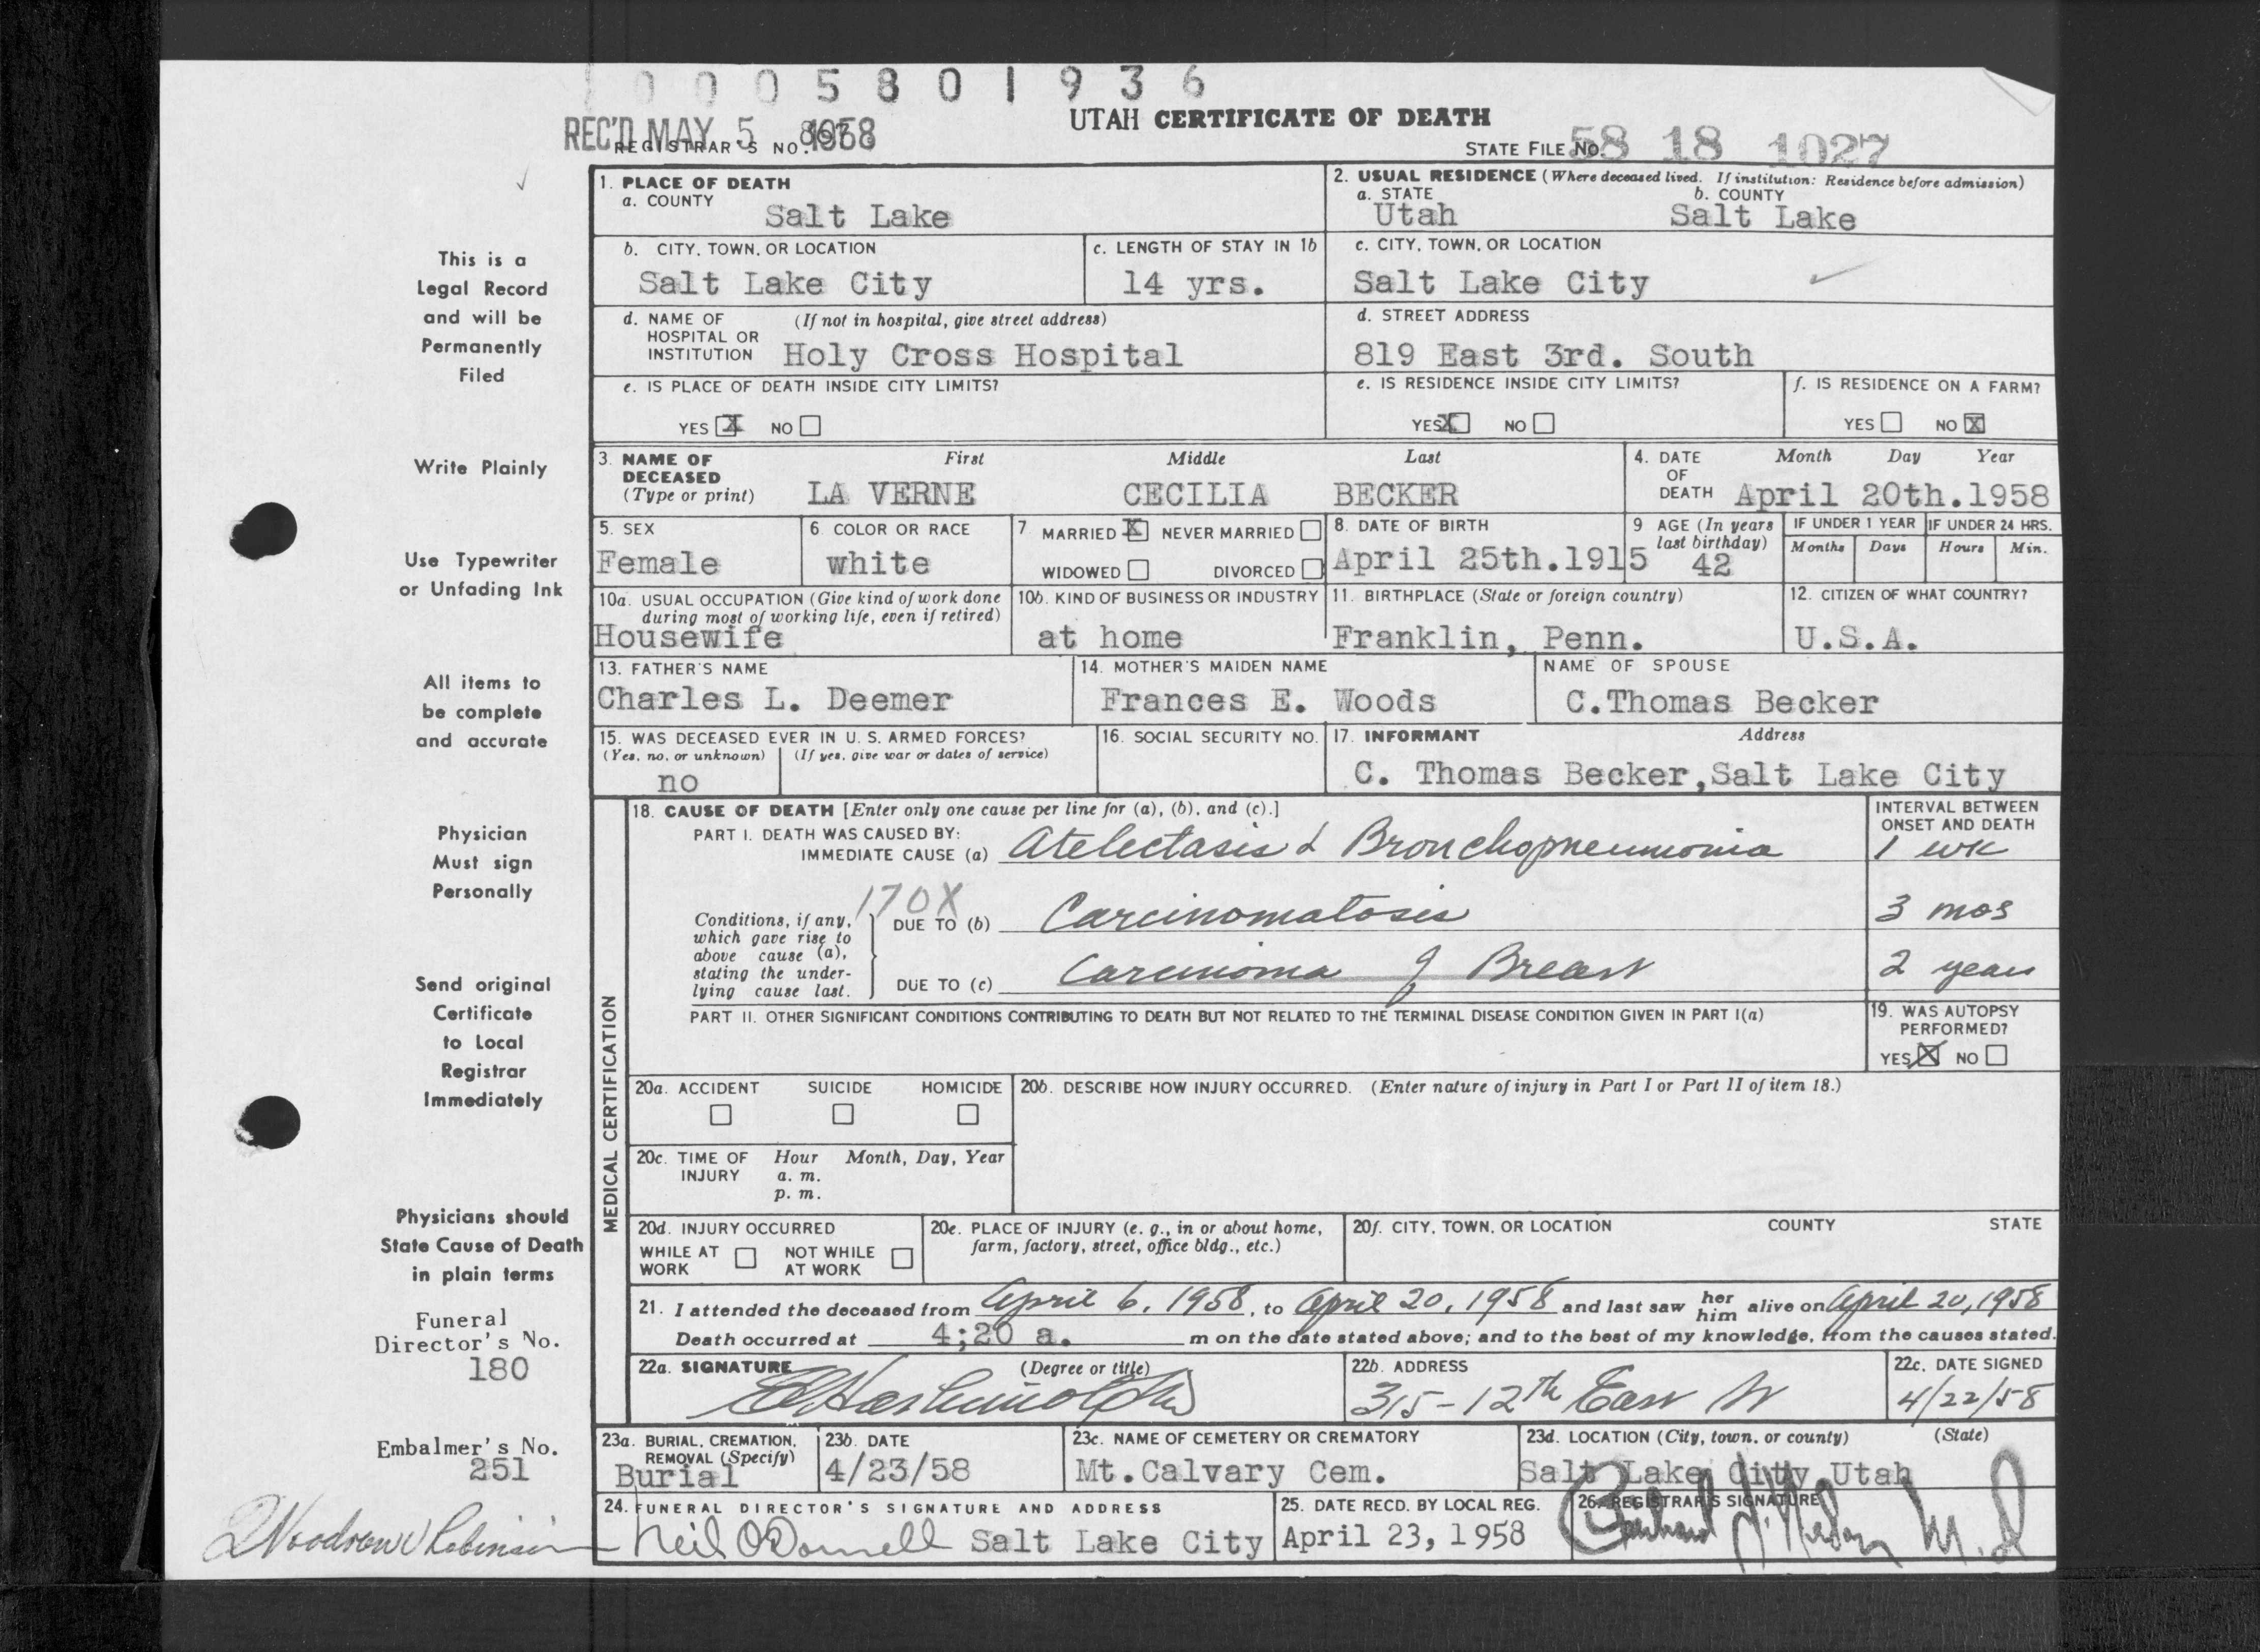 0005801936
REC'D MAY 5 1958
REGISTRAR'S NO.
UTAH CERTIFICATE OF DEATH
STATE FILE No. 58 18 1027
This is a
Legal Record
and will be
Permanently
Filed
Write Plainly
Use Typewriter
or Unfading Ink
All items to
be complete
and accurate
Physician
Must sign
Personally
Send original
Certificate
to Local
Registrar
Immediately
Physicians should
State Cause of Death
in plain terms
Funeral
Director's No.
180
Embalmer's No.
251
1. PLACE OF DEATH
a. COUNTY
Salt Lake
2. USUAL RESIDENCE (Where deceased lived. If institution: Residence before admission)
a. STATE b. COUNTY
Utah Salt Lake
b. CITY, TOWN, OR LOCATION
Salt Lake City
c. LENGTH OF STAY IN 1b
14 yrs.
c. CITY, TOWN, OR LOCATION
Salt Lake City
d. NAME OF (If not in hospital, give street address)
HOSPITAL OR
INSTITUTION Holy Cross Hospital
d. STREET ADDRESS
819 East 3rd. South
e. IS PLACE OF DEATH INSIDE CITY LIMITS?
YES X NO
e. IS RESIDENCE INSIDE CITY LIMITS?
YES X NO
f. IS RESIDENCE ON A FARM?
YES NO X
3. NAME OF First Middle Last
DECEASED
(Type or print) LA VERNE CECILIA BECKER
4. DATE Month Day Year
OF
DEATH April 20th.1958
5. SEX
Female
6. COLOR OR RACE
white
7. MARRIED X NEVER MARRIED
WIDOWED DIVORCED
8. DATE OF BIRTH
April 25th.1915
9 AGE (In years
last birthday)
42
IF UNDER 1 YEAR
Months Days
IF UNDER 24 HRS.
Hours Min.
10a. USUAL OCCUPATION (Give kind of work done
during most of working life, even if retired)
Housewife
10b. KIND OF BUSINESS OR INDUSTRY
at home
11. BIRTHPLACE (State or foreign country)
Franklin, Penn.
12. CITIZEN OF WHAT COUNTRY?
U.S.A.
13. FATHER'S NAME
Charles L. Deemer
14. MOTHER'S MAIDEN NAME
Frances E. Woods
NAME OF SPOUSE
C.Thomas Becker
15. WAS DECEASED EVER IN U. S. ARMED FORCES?
(Yes, no, or unknown) (If yes, give war or dates of service)
no
16. SOCIAL SECURITY NO.
17. INFORMANT Address
C. Thomas Becker,Salt Lake City
MEDICAL CERTIFICATION
18. CAUSE OF DEATH [Enter only one cause per line for (a), (b), and (c).]
INTERVAL BETWEEN
ONSET AND DEATH
PART I. DEATH WAS CAUSED BY:
IMMEDIATE CAUSE (a) Atelectasis & Bronchopneumonia 1 wk
170X
Conditions, if any,
which gave rise to
above cause (a),
stating the under-
lying cause last.
DUE TO (b) Carcinomatosis 3 mos
DUE TO (c) Carcinoma of Breast 2 years
PART II. OTHER SIGNIFICANT CONDITIONS CONTRIBUTING TO DEATH BUT NOT RELATED TO THE TERMINAL DISEASE CONDITION GIVEN IN PART I(a)
19. WAS AUTOPSY
PERFORMED?
YES X NO
20a. ACCIDENT SUICIDE HOMICIDE
20b. DESCRIBE HOW INJURY OCCURRED. (Enter nature of injury in Part I or Part II of item 18.)
20c. TIME OF Hour Month, Day, Year
INJURY a. m.
p. m.
20d. INJURY OCCURRED
WHILE AT NOT WHILE
WORK AT WORK
20e. PLACE OF INJURY (e. g., in or about home,
farm, factory, street, office bldg., etc.)
20f. CITY, TOWN, OR LOCATION COUNTY STATE
21. I attended the deceased from April 6, 1958, to April 20, 1958 and last saw her him alive on April 20, 1958
Death occurred at 4;20 a. m on the date stated above; and to the best of my knowledge, from the causes stated.
22a. SIGNATURE (Degree or title)
22b. ADDRESS
315-12th East
22c. DATE SIGNED
4/22/58
23a. BURIAL, CREMATION,
REMOVAL (Specify)
Burial
23b. DATE
4/23/58
23c. NAME OF CEMETERY OR CREMATORY
Mt.Calvary Cem.
23d. LOCATION (City, town, or county) (State)
Salt Lake City Utah
24. FUNERAL DIRECTOR'S SIGNATURE AND ADDRESS
Neil O'Donnell Salt Lake City
25. DATE RECD. BY LOCAL REG.
April 23, 1958
26. REGISTRAR'S SIGNATURE
M.D